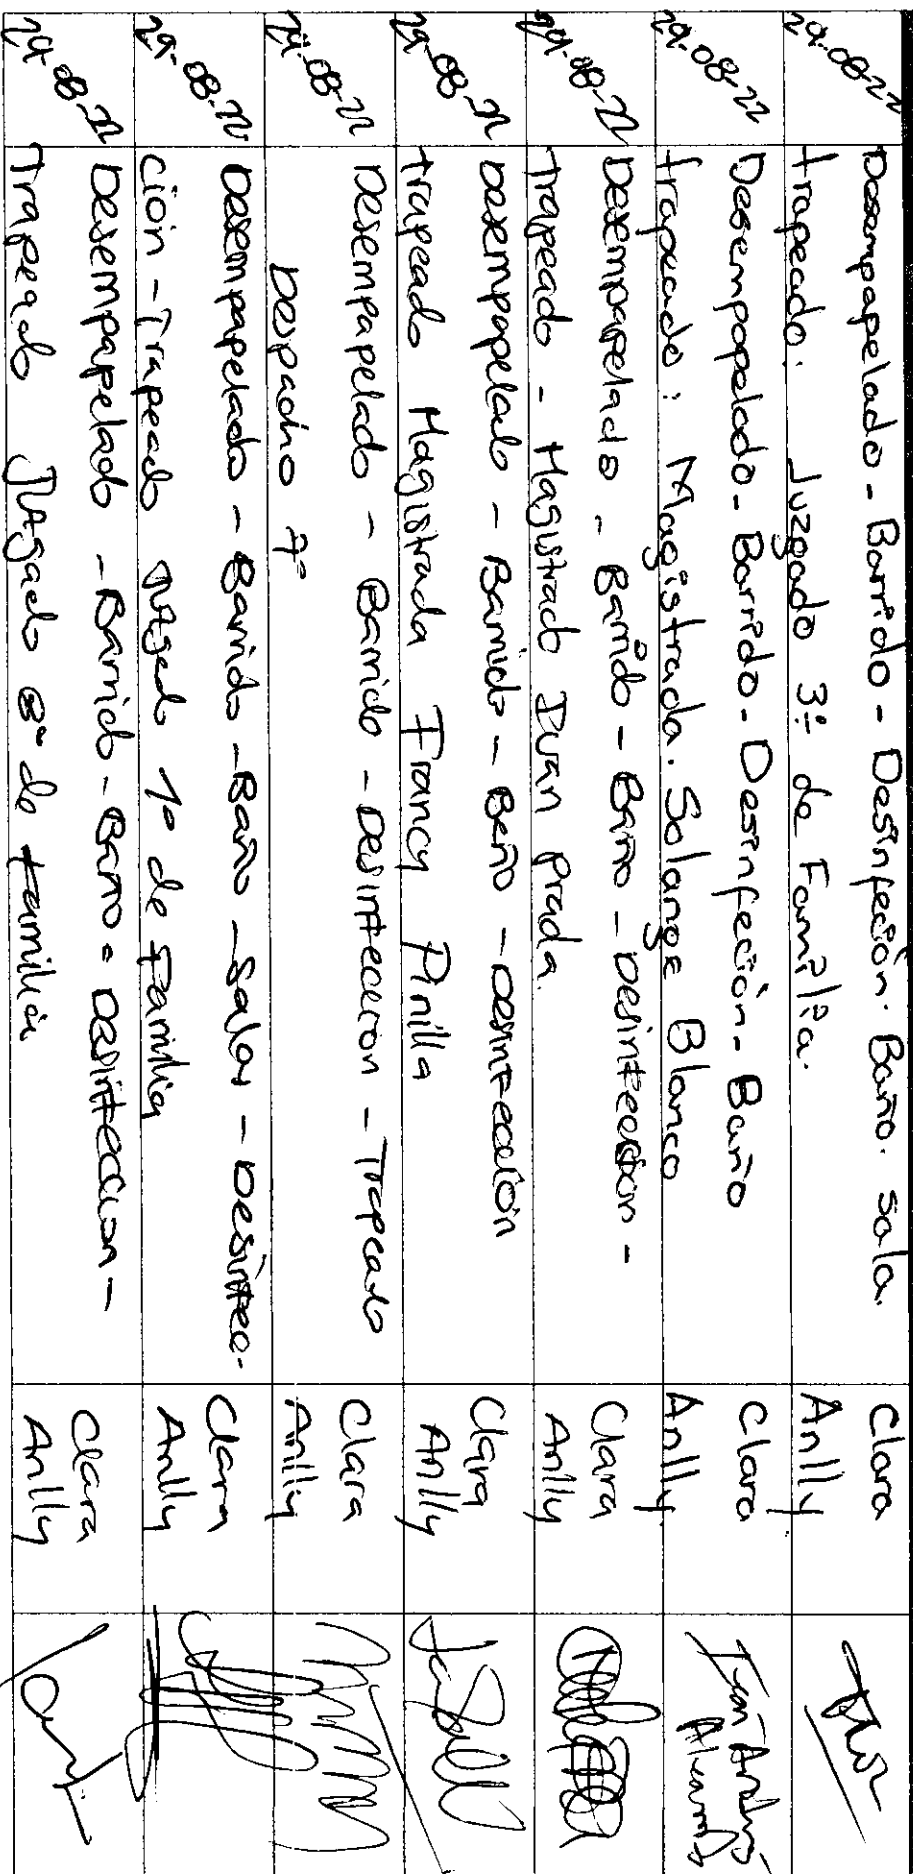 29-08-22 Desempapelado - Barrido - Desinfeción. Baño. sala. Clara
trapeado. Juzgado 3º de Familia. Anlly
29-08-22 Desempapelado - Barrido - Desinfeción - Baño Clara
trapeado: Magistrada. Solange Blanco Anlly
29-08-22 Desempapelado - Barrido - Baño - Desinfección - Clara
trapeado - Magistrado Ivan prada. Anlly
29-08-22 Desempapelado - Barrido - Baño - Desinfección Clara
trapeado Magistrada Francy Pinilla Anlly
29-08-22 Desempapelado - Barrido - Desinfeccion - Trapeado Clara
Despacho 7º Anlly
29-08-22 Desempapelado - Barrido - Baño - Salas - Desinfec- Clara
ción - Trapeado 1º de Familia Anlly
29-08-22 Desempapelado - Barrido - Baño - Desinfeccion - Clara
Trapeado de familia Anlly